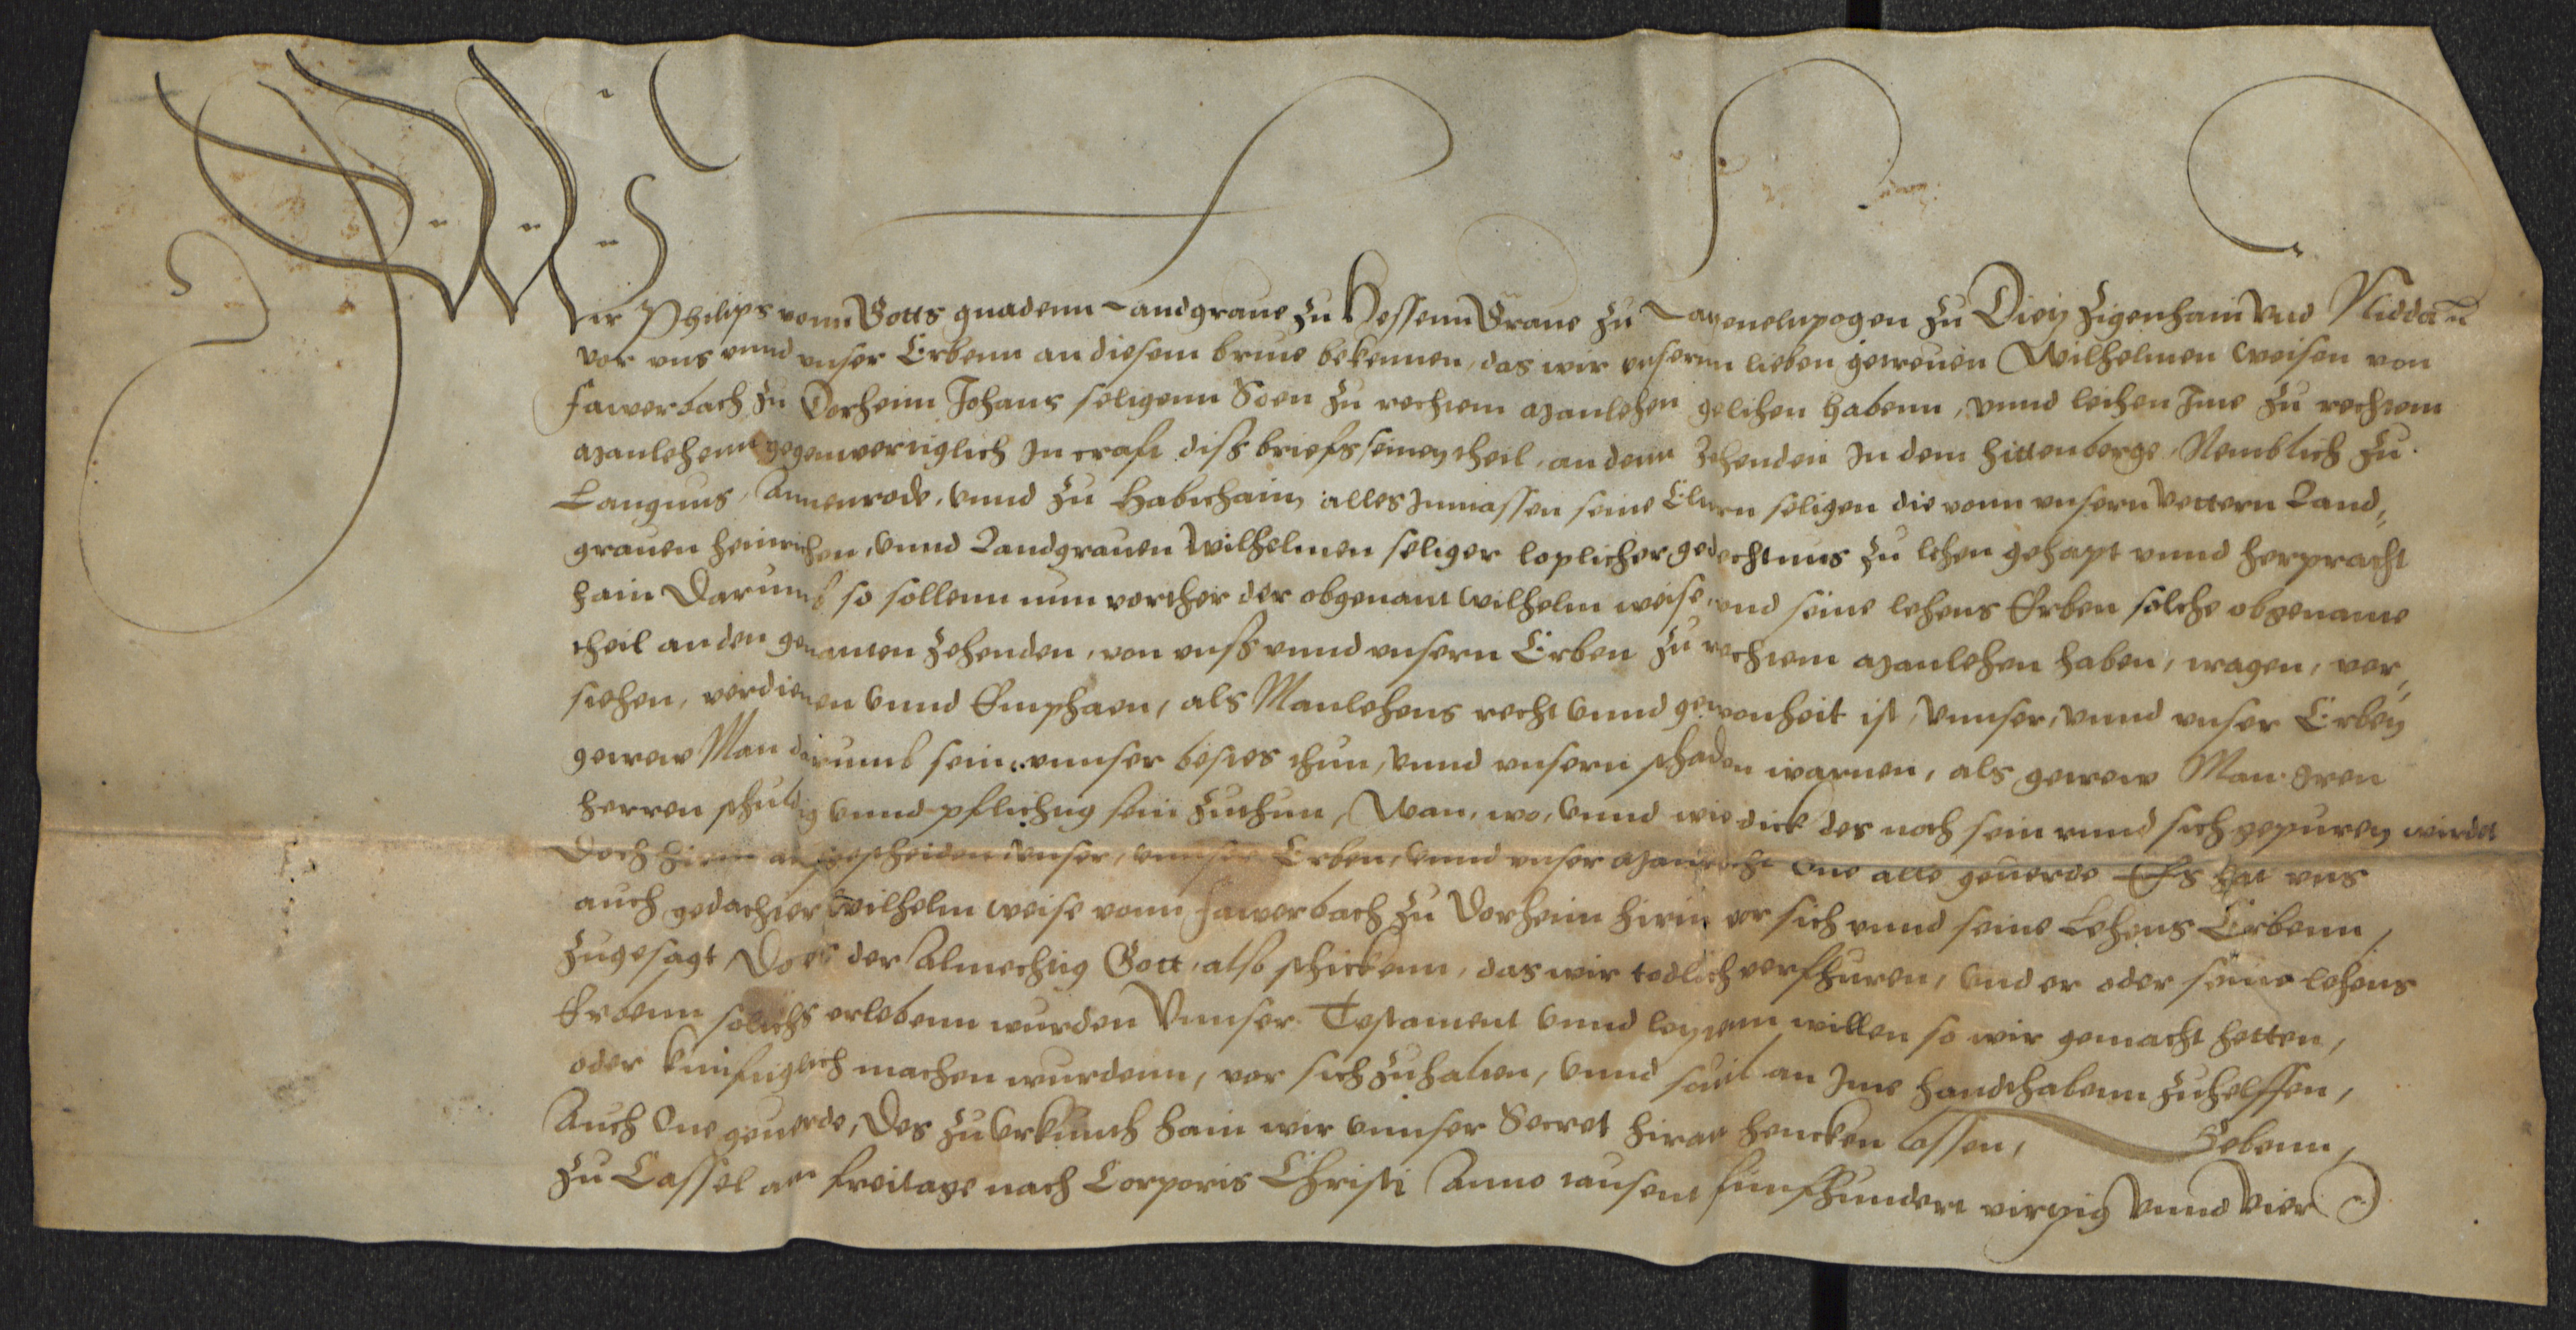 Wir Philips vonn Gotts gnadenn Landgraue zu Hessenn Graue zu Catzenelnpogen zu Dietz Zigenhain vnd Nidda
vor vns vnnd vnser Erbenn an diesem briue bekennen, das wir vnserm lieben getreuen Wilhelmen weisen von
fawerbach zu Dorheim Johans seligenn Soen zu rechtem manlehen gelihen habenn, vnnd leihen Ime zu rechtem
manlehenn gegenwertiglich In craft diss briefs seinen theil, an denn Zehenden In dem hittenberge, Nemblich zu
Langguns, Annenrode, vnnd zu Habichain, alles Inmassen seine Eltern seligen die vonn vnsern vettern Land,
grauen Heinrichen, vnnd Landgrauen Wilhelmen seliger loplicher gedechtnus zu lehen gehapt vnnd herpracht
hain Darumb so sollenn nun vorther der obgenant Wilhelm weise, vnd seine lehens Erben solche obgenante
theil an den genanten Zehenden, von vnss vnnd vnsern Erben zu rechtem manlehen haben, tragen, ver,
stehen, verdienen vnnd Emphaen, als Manlehens recht vnnd gewonheit ist, Vnnser, vnnd vnser Erben
getrew Man darumb sein, vnnser bestes thun, vnnd vnsern schaden warnen, als getrew Man Iren
herren schuldig vnnd pflichtig sein zuthun, Wan, wo, vnnd wie dick des noth sein vnnd sich gepuren wirdet
Doch hirin ausgescheiden vnser, vnnser Erben, vnnd vnser manrecht One alle geuerde Es hat vns
auch gedachter Wilhelm weise vonn fawerbach zu Dorheim hirin vor sich vnnd seine Lehens Erbenn,
zugesagt Do es der Almechtig Gott, also schickenn, das wir todlich verfhuren, vnd er oder seine lehens
Erbenn solichs erlebenn wurden Vnnser Testament vnnd letztenn willen so wir gemacht hetten,
oder kunftiglich machen wurdenn, vor sich zuhalten, vnnd souil an Ime handthabenn zuhelffen,
Auch One geuerde, Des zu Vrkunth hain wir vnnser Secret hiran hencken lassen, Gebenn,
zu Cassel am freitage nach Corporis Christi Anno tausent funfhundert virtzig vnnd vier